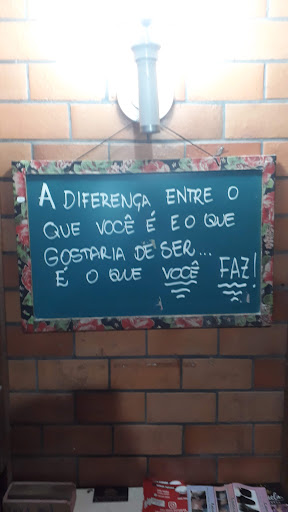 A DIFERENÇA ENTRE O
QUE VOCÊ É E O QUE
GOSTARIA DE SER...
É O QUE VOCÊ FAZ!